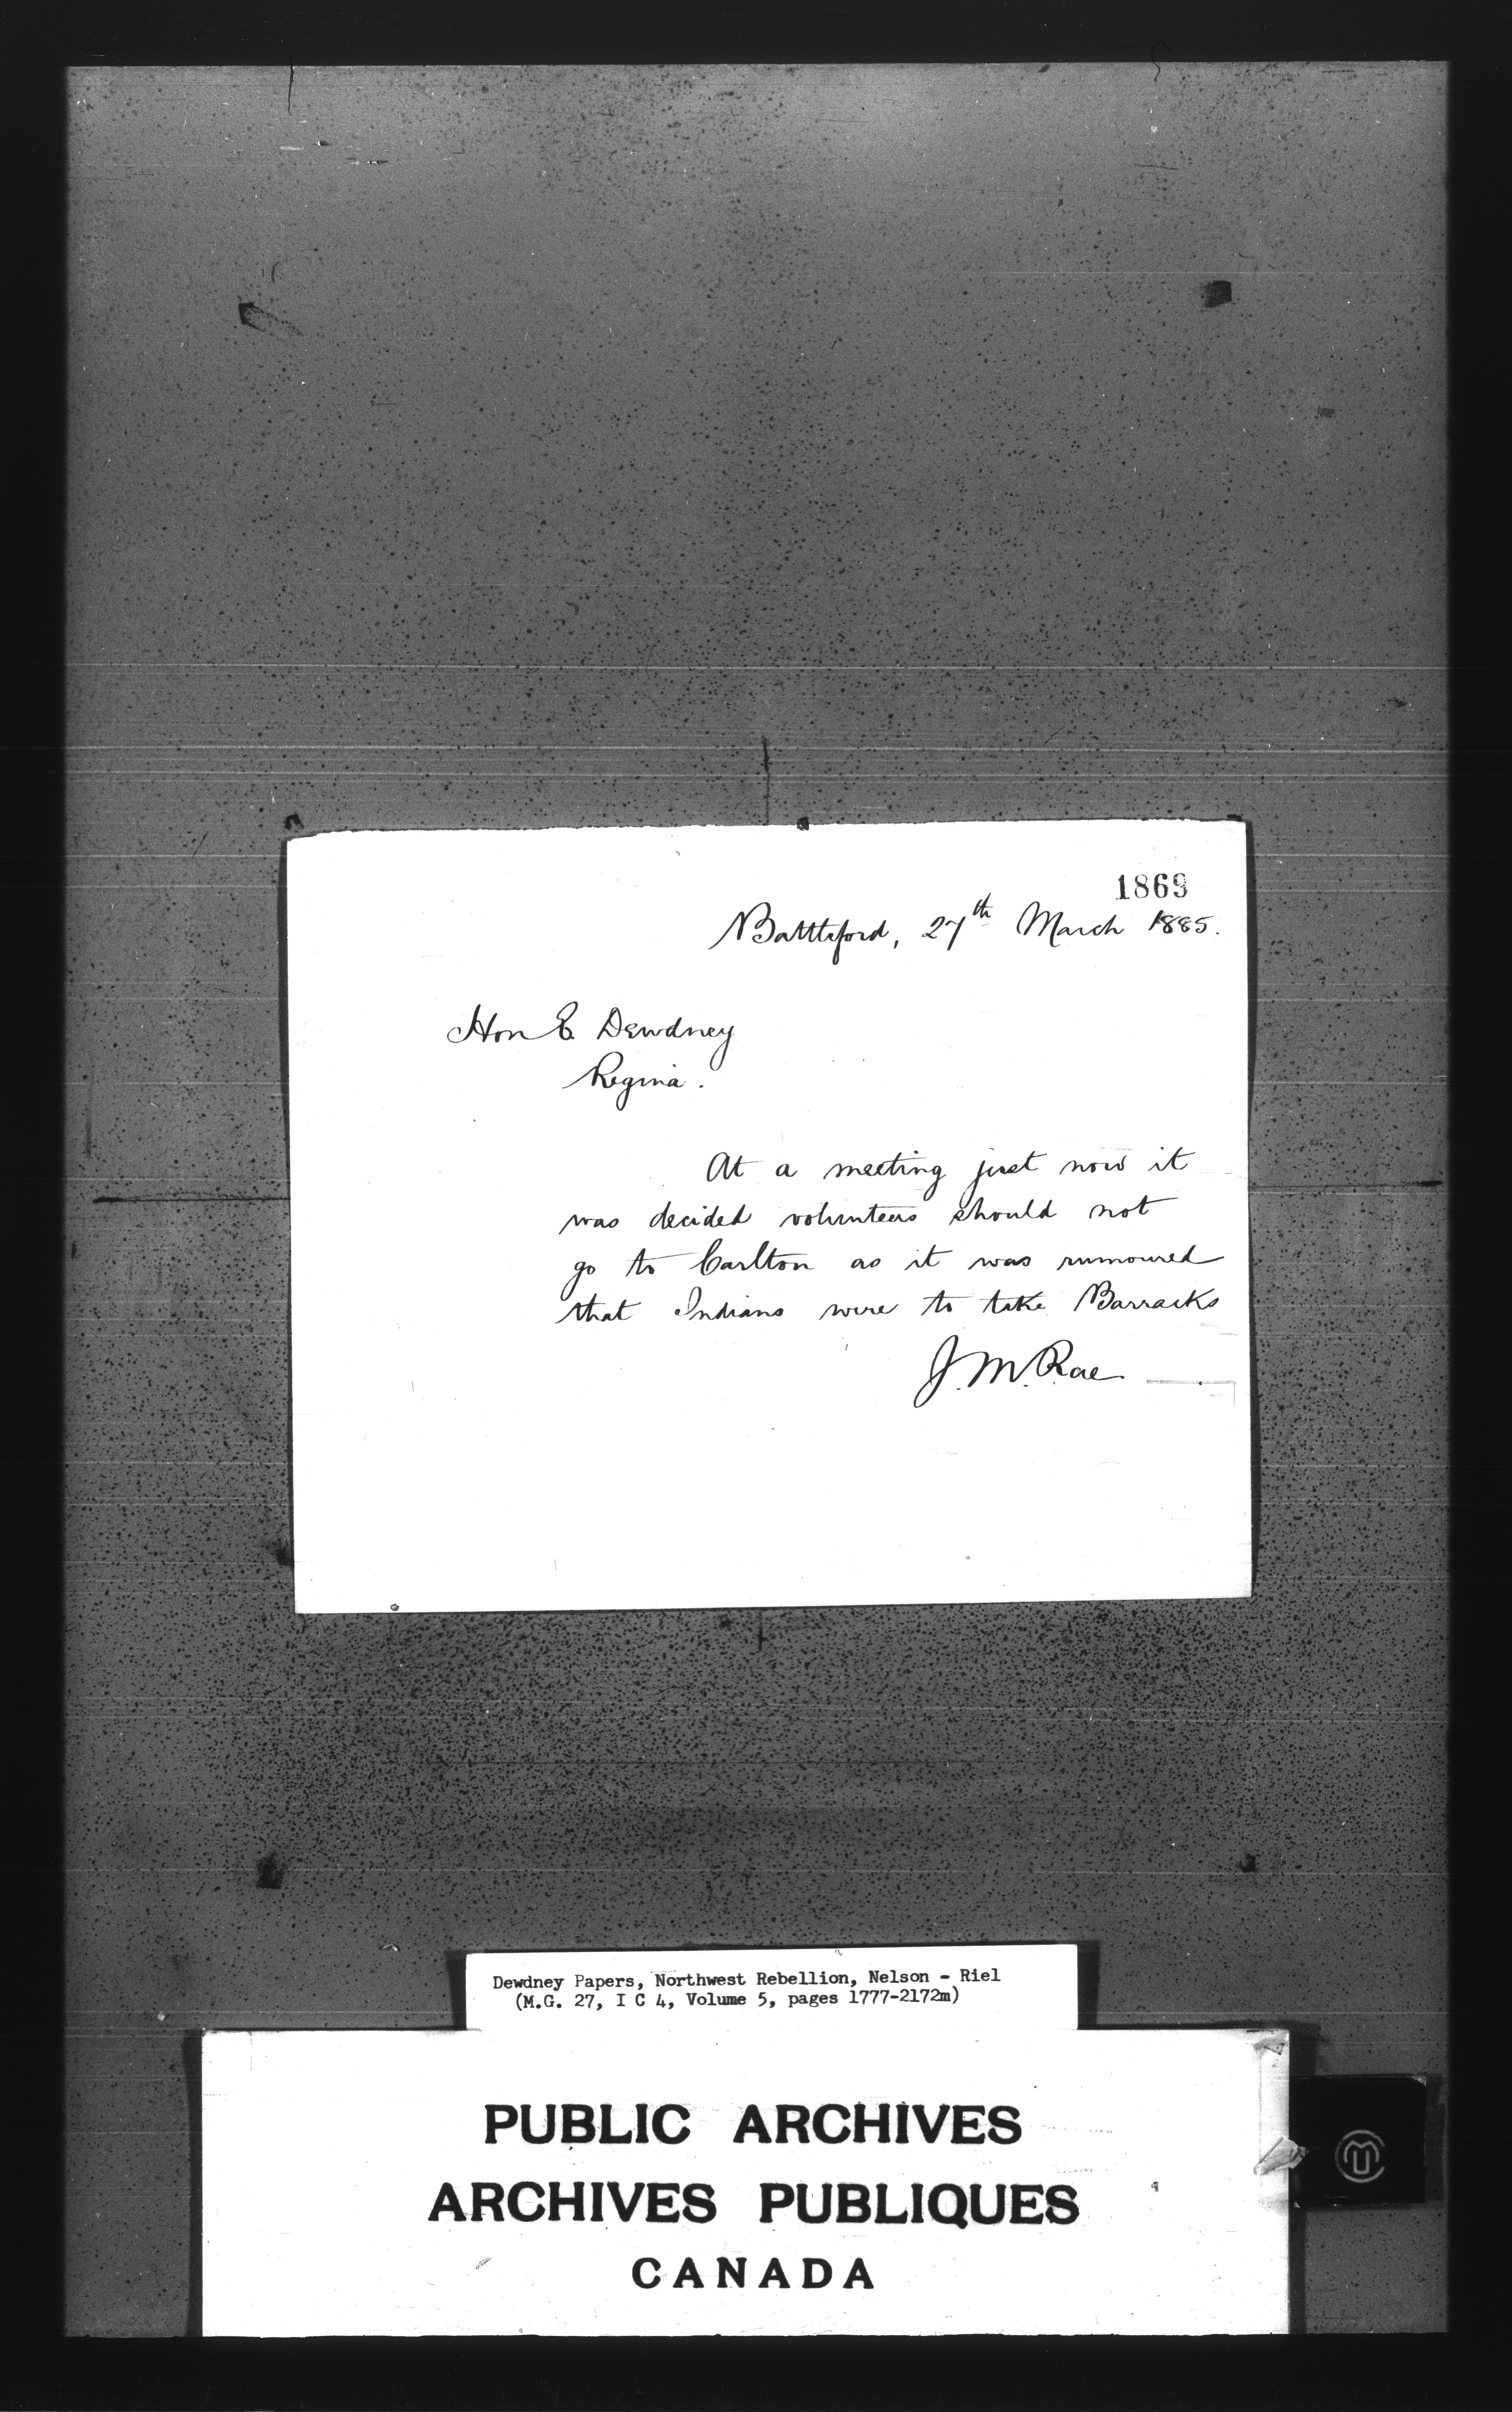 1869
Battleford, 27th March 1885.
Hon E. Dewdney
Regina.
At a meeting just now it
was decided volunteers should not
go to Carlton as it was rumoured
that Indians were to take Barracks
J. M. Rae
Dewdney Papers, Northwest Rebellion, Nelson - Riel
(M.G. 27, I C 4, Volume 5, pages 1777-2172m)
PUBLIC ARCHIVES
ARCHIVES PUBLIQUES
CANADA